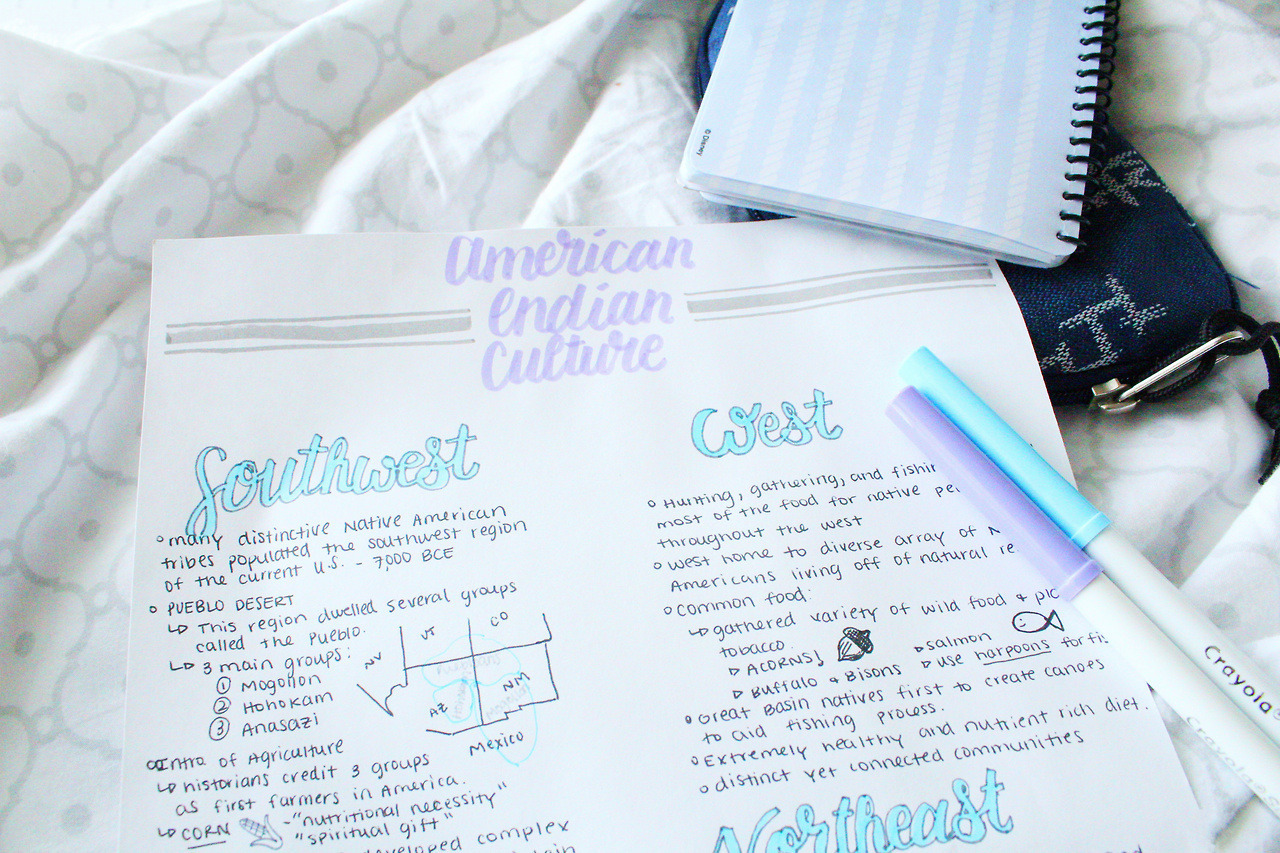 © Disney
American
Indian
Culture
Southwest
many distinctive Native American
tribes populated the southwest region
of the current U.S. - 7,000 BCE
PUEBLO DESERT
↳ This region dwelled several groups
called the Pueblo.
↳ 3 main groups:
① Mogollon
② Hohokam
③ Anasazi
NV
UT
CO
AZ
NM
Mexico
Intro of Agriculture
↳ historians credit 3 groups
as first farmers in America.
↳ CORN - "nutritional necessity"
"spiritual gift"
complex
West
Hunting, gathering, and
most of the food for native
throughout the west
west home to diverse array of
Americans living off of natural
common food:
↳ gathered variety of wild food &
tobacco.
▹ ACORNS!
▹ salmon
▹ Buffalo & Bisons
▹ use harpoons for
Great Basin natives first to create canoes
to aid fishing process.
Extremely healthy and nutrient rich diet.
distinct yet connected communities
Northeast
Crayola
Crayola